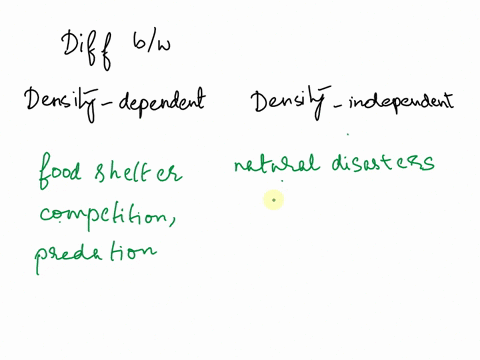 Diff b/w
Density-dependent Density-independent
food shelter natural disasters
competition,
predation